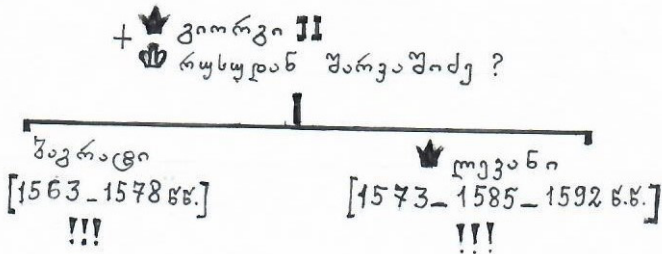 + გიორგი II
რუსუდან შარვაშიძე ?
ბაგრატი
[1563_1578 წწ.]
!!!
ლევანი
[1573_1585_1592 წ.წ.]
!!!